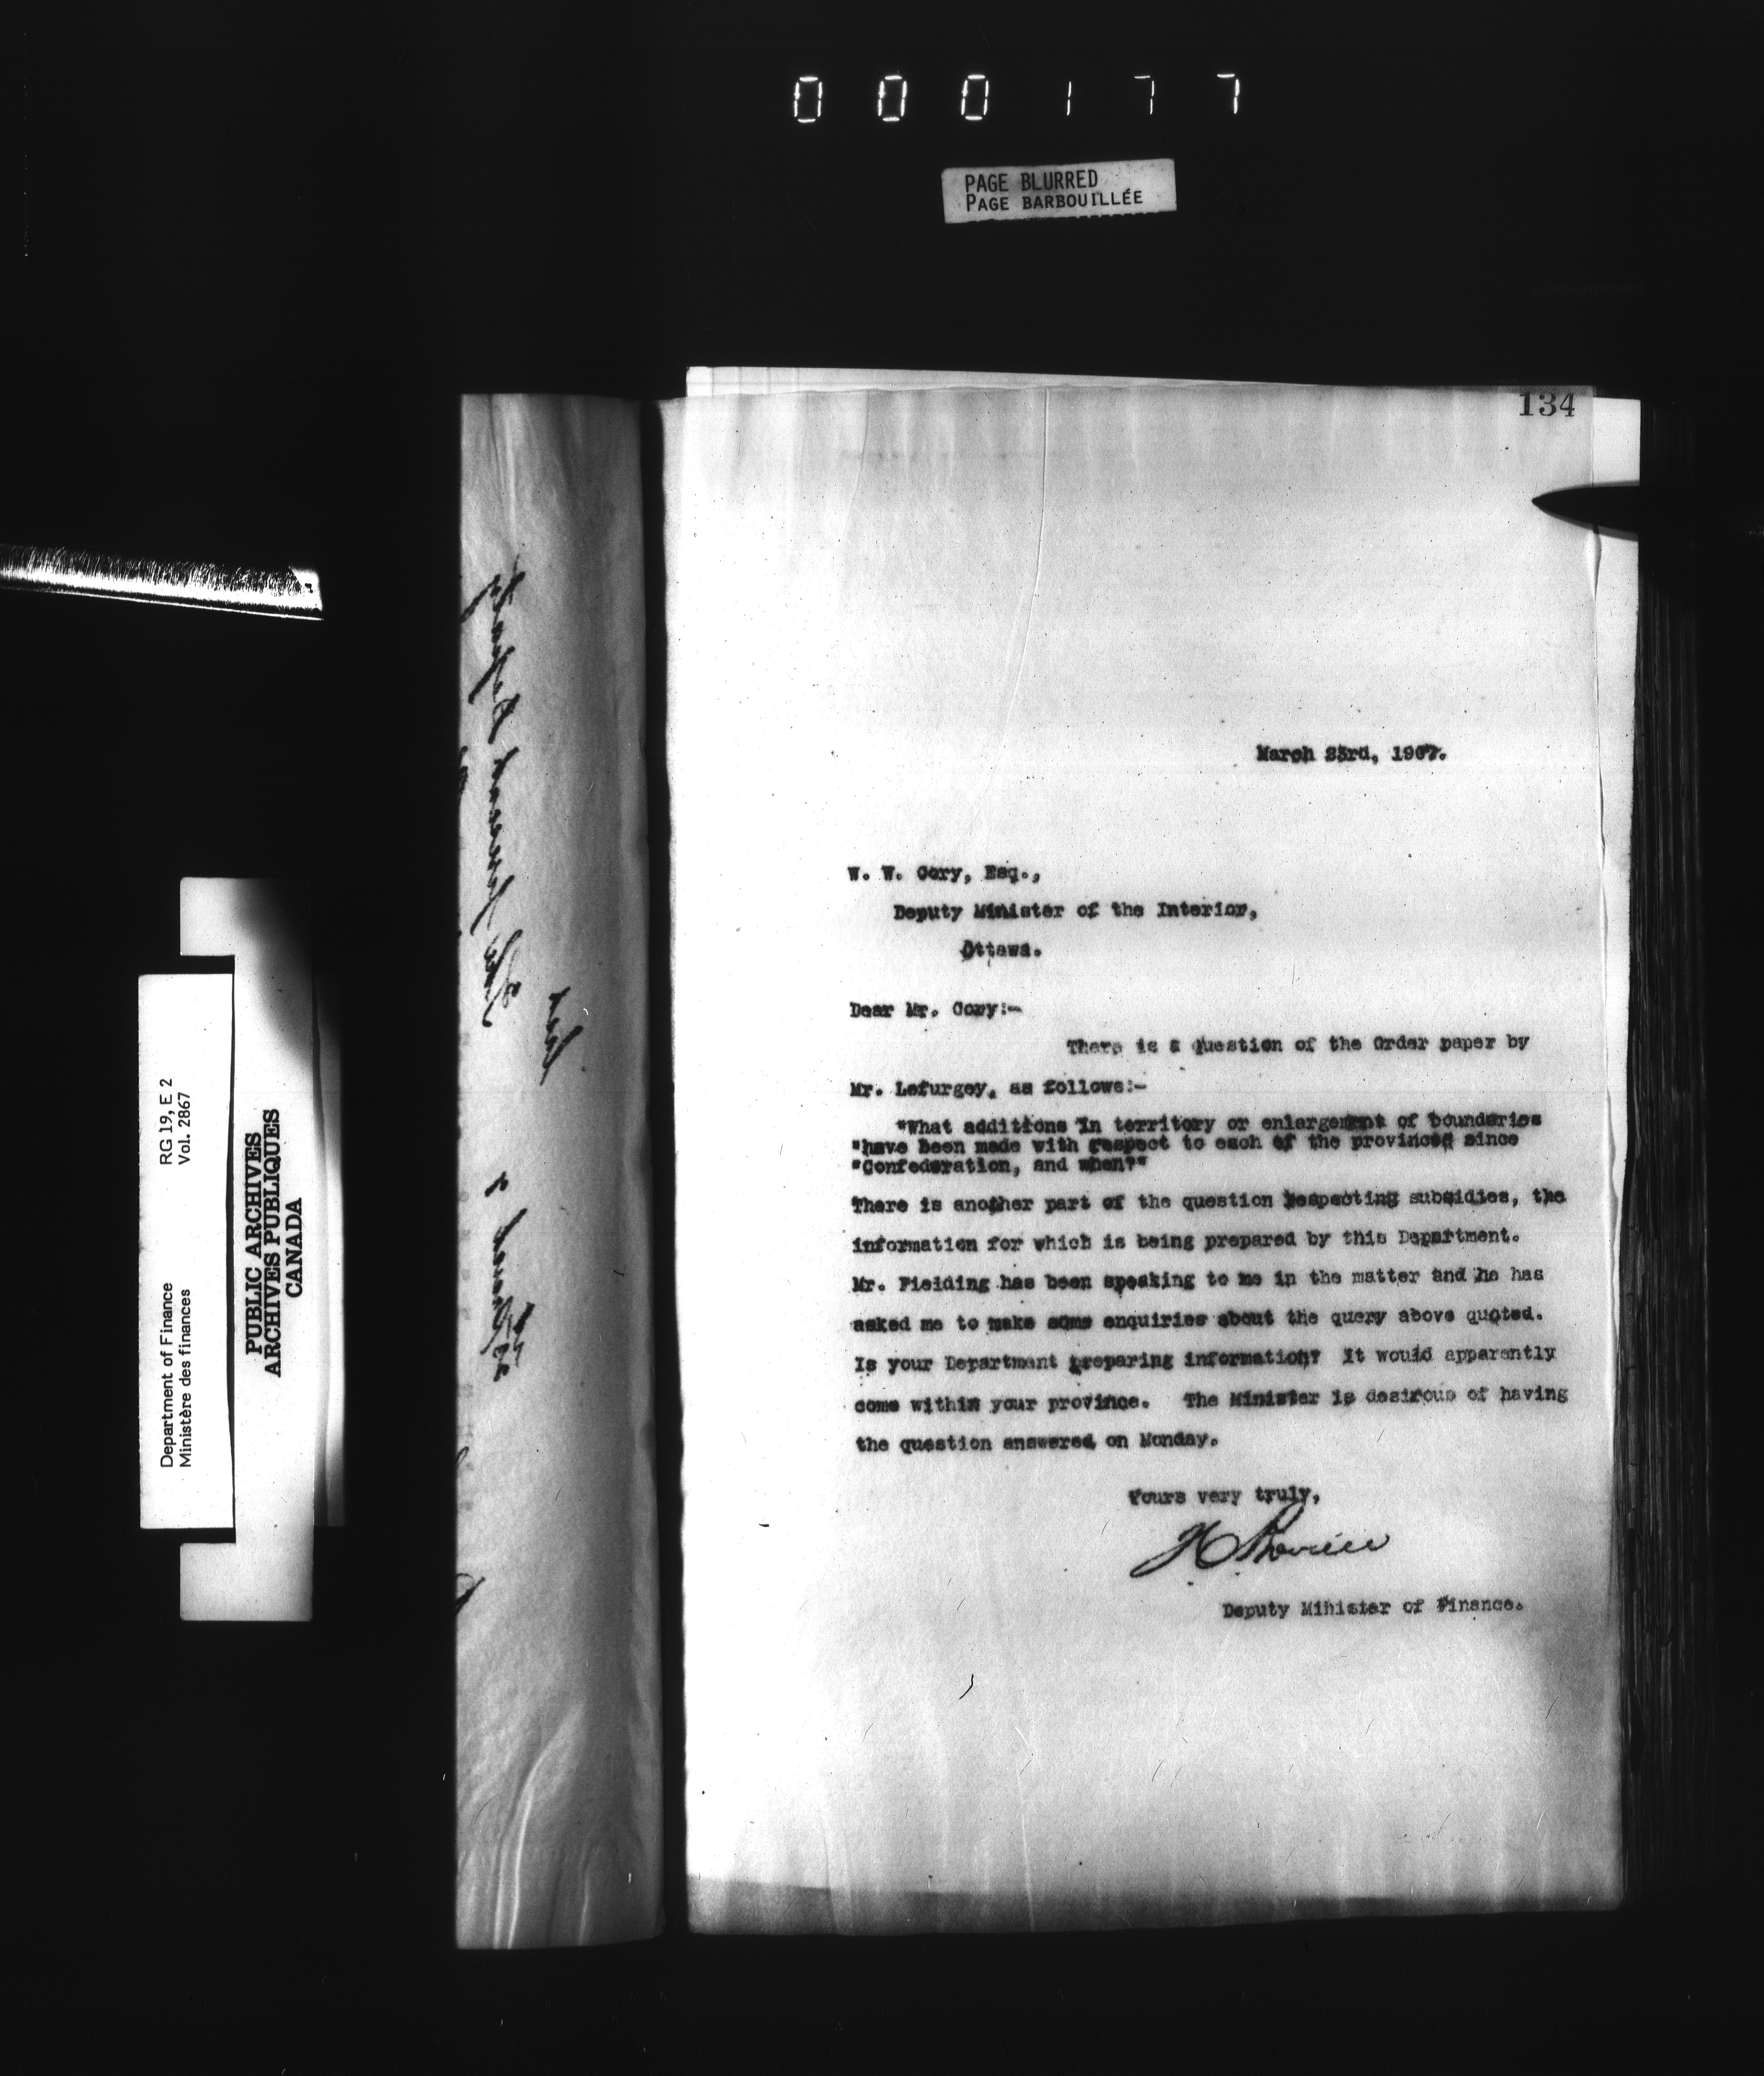 000177
PAGE BLURRED
PAGE BARBOUILLÉE
134
March 23rd, 1907.
W. W. Cory, Esq.,
Deputy Minister of the Interior,
Ottawa.
Dear Mr. Cory:-
There is a question of the Order paper by
Mr. Lefurgey, as follows:-
"What additions in territory or enlargement of boundaries
"have been made with respect to each of the provinces since
"Confederation, and when?"
There is another part of the question respecting subsidies, the
information for which is being prepared by this Department.
Mr. Fielding has been speaking to me in the matter and he has
asked me to make some enquiries about the query above quoted.
Is your Department preparing information? It would apparently
come within your province. The Minister is desirous of having
the question answered on Monday.
Yours very truly,
Deputy Minister of Finance.
Department of Finance
Ministère des finances
RG 19, E 2
Vol. 2867
PUBLIC ARCHIVES
ARCHIVES PUBLIQUES
CANADA